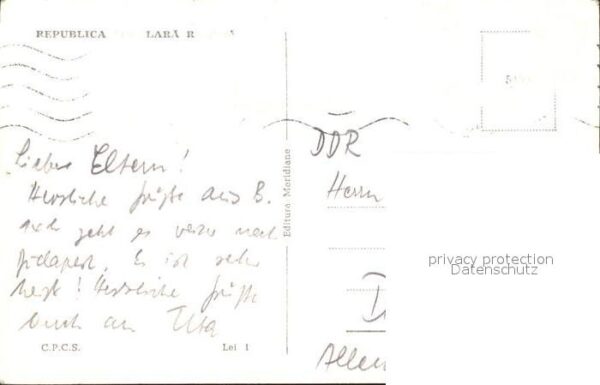 REPUBLICA LARĂ R
Liebe Eltern!
Herzliche Grüße aus B.
geht es weiter nach
Budapest. Es ist sehr
heiß! Herzliche Grüße
auch an
C.P.C.S. Lei 1
Editura Meridiane
DDR
Herrn
privacy protection
Datenschutz
D
Allem